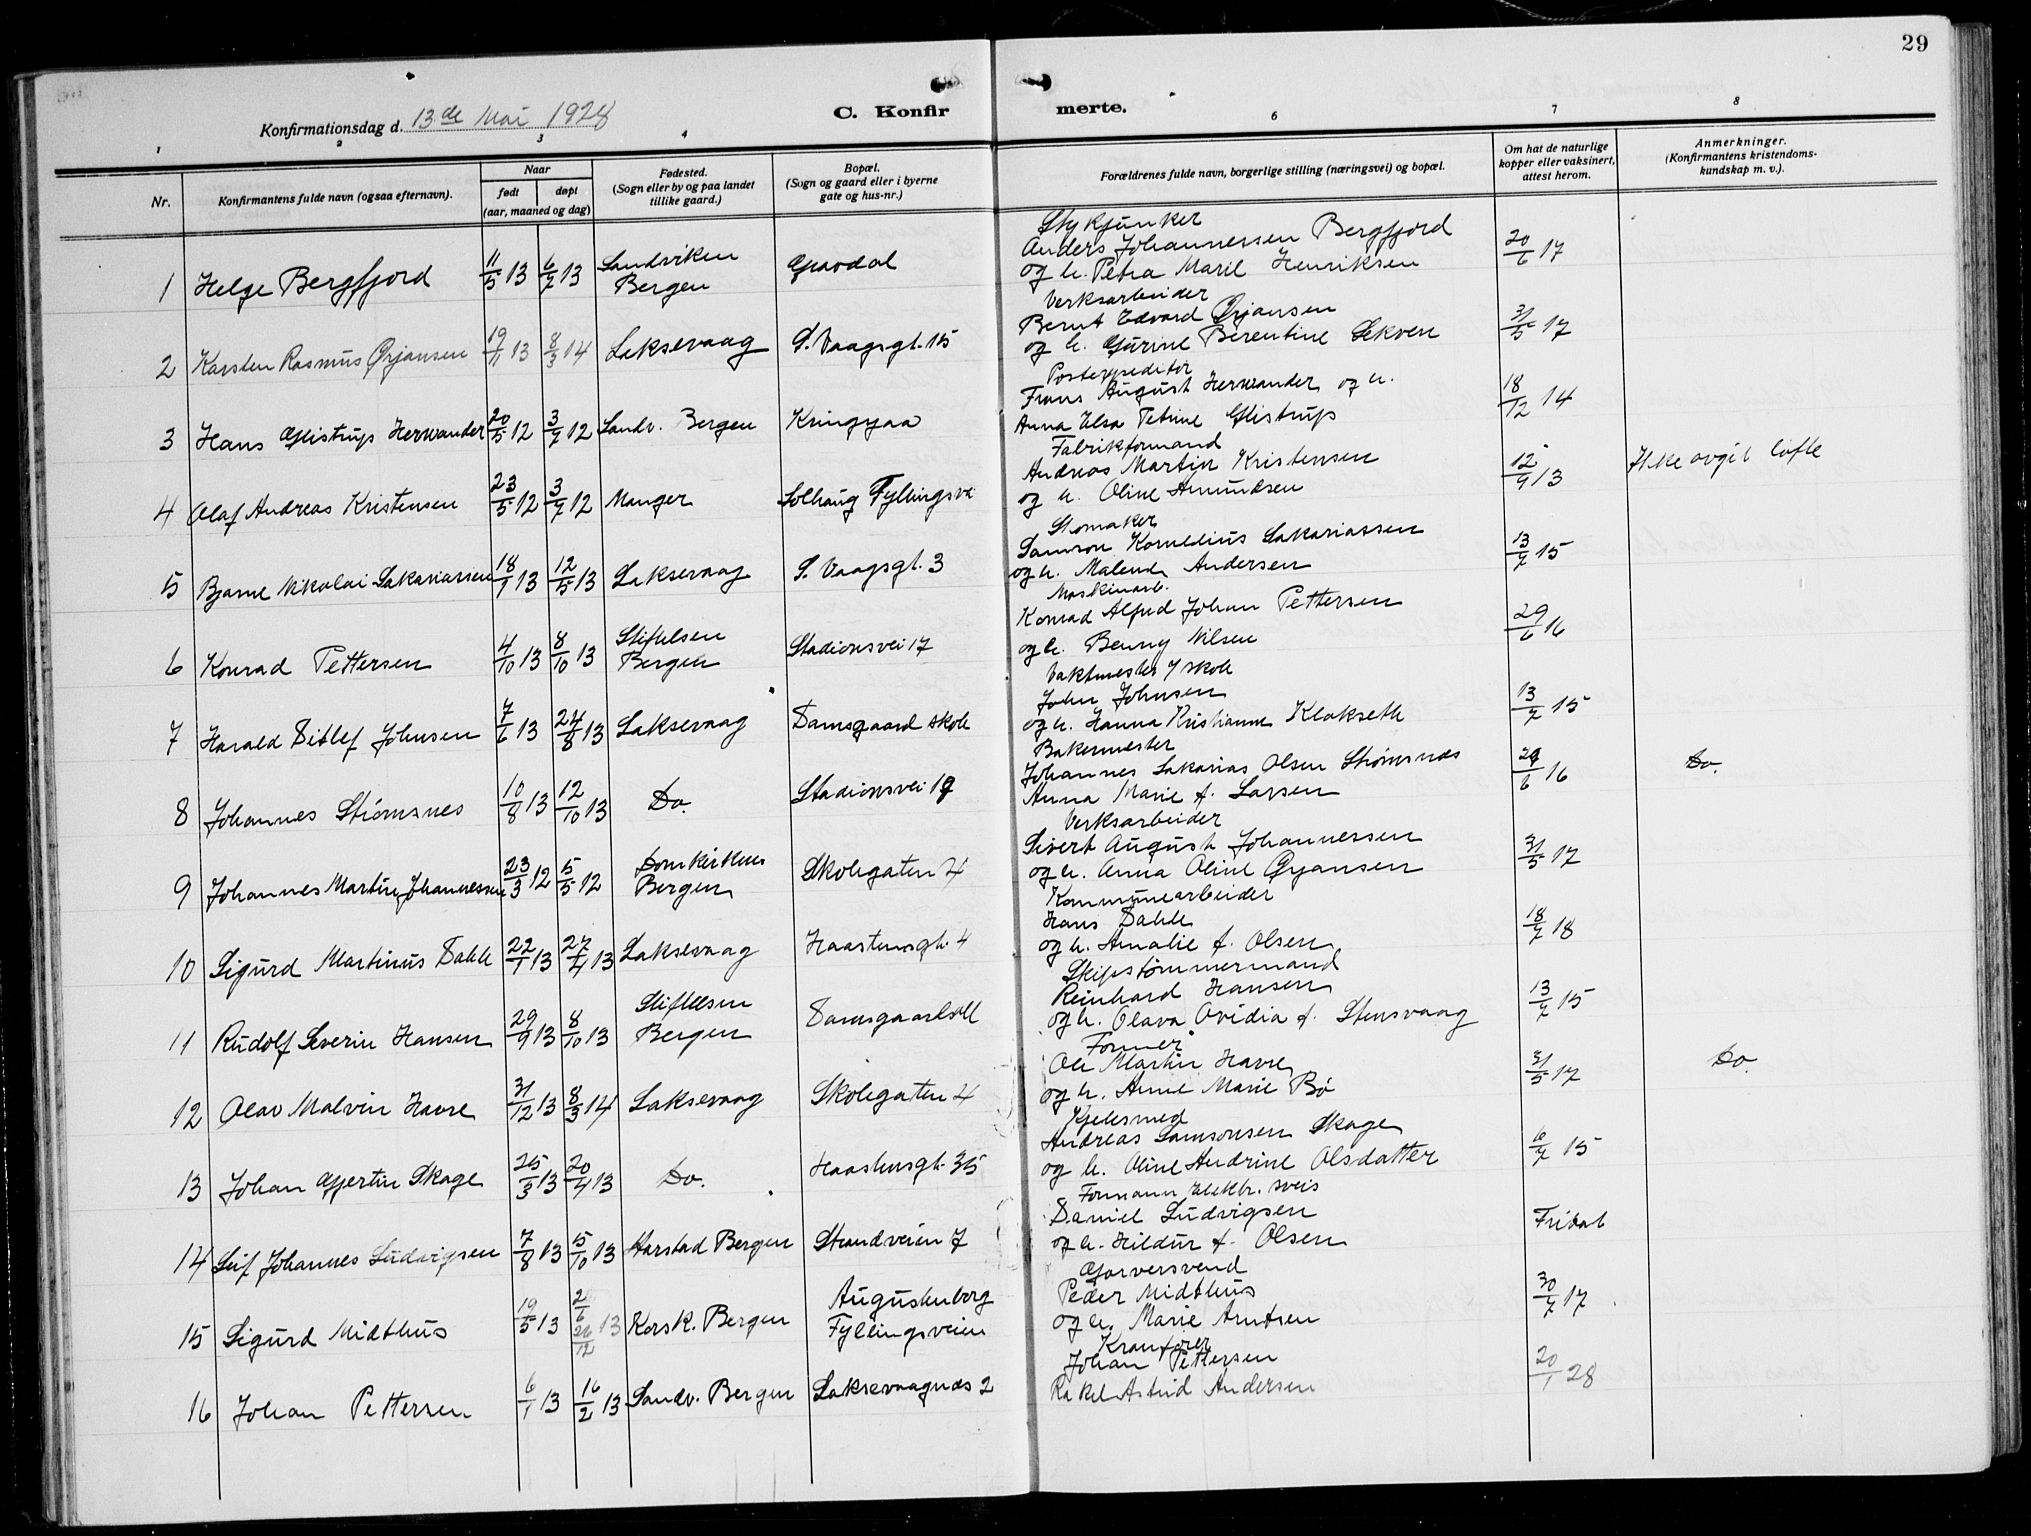 29
Konfirmationsdag d. 13de Mai 1928
C. Konfir merte.
1 2 3 4 6 7 8
Nr.
Konfirmantens fulde navn (ogsaa efternavn).
Naar
født døpt
(aar, maaned og dag)
Fødested.
(Sogn eller by og paa landet
tillike gaard.)
Bopæl.
(Sogn og gaard eller i byerne
gate og hus-nr.)
Forældrenes fulde navn, borgerlige stilling (næringsvei) og bopæl.
Om hat de naturlige
kopper eller vaksinert,
attest herom.
Anmerkninger.
(Konfirmantens kristendoms-
kundskap m. v.).
Stykjunker
Anders Johannessen Bergfjord
1 Helge Bergfjord 11/5 13 6/7 13 Sandviken Bergen og h. Petra Marie Henriksen 20/6 17
Verksarbeider
Bernt Edvard Ørjansen
2 Karsten Rasmus Ørjansen 19/11 13 8/3 14 Laksevaag S. Vaagsgt. 15 og h. Gurine Berentine Sekven 31/5 17
Postexpeditör
Frans August Herwander og h.
3 Hans Gjistrup Herwander 20/5 12 3/7 12 Sandv. Bergen Kringsjaa Anna Elsa Petrine Gjistrup 18/12 14
Fabrikformand
Andreas Martin Kristensen
4 Olaf Andreas Kristensen 23/5 12 3/7 12 Manger Solhaug Fyllingsv. og h. Oline Amundsen 12/9 13 Ikke avgit løfte
Skomaker
Samson Kornelius Sakariassen
5 Bjarne Nikolai Sakariassen 18/1 13 12/5 13 Laksevaag S. Vaagsgt. 3 og h. Malene Andersen 13/7 15
Maskinarb.
Konrad Alfred Johan Pettersen
6 Konrad Pettersen 4/10 13 8/10 13 Stiftelsen Bergen Stadionsvei 17 og h. Benny Nilsen 29/6 16
Vaktmester v/ skole
John Johnsen
7 Harald Ditlef Johnsen 7/6 13 24/8 13 Laksevaag Damsgaard skole og h. Hanna Kristianne Klokseth 13/7 15
Bakermester
Johannes Sakarias Olsen Strømsnes
8 Johannes Strømsnes 10/8 13 12/10 13 Do. Stadionsvei 19 Anna Marie f. Larsen 29/6 16 Do.
Verksarbeider
Sivert August Johannessen
9 Johannes Martin Johannessen 23/3 12 5/5 12 Domkirken Bergen Skolegaten 4 og h. Anna Oline Ørjansen 31/5 17
Kommunearbeider
Hans Dahle
10 Sigurd Martinus Dahle 22/1 13 27/4 13 Laksevaag Haastensgt. 4 og h. Amalie f. Olsen 18/7 18
Skipstømmermand
Reinhard Hansen
11 Rudolf Severin Hansen 29/9 13 8/10 13 Stiftelsen Bergen Damsgaardsall og h. Olava Ovidia f. Stensvaag 13/7 15
Former
Ole Martin Havre
12 Olav Malvin Havre 31/12 13 8/3 14 Laksevaag Skolegaten 4 og h. Anne Marie Bø 31/5 17 Do.
Kjelesmed
Andreas Samsonsen Skage
13 Johan Gjertin Skage 25/3 13 20/4 13 Do. Haastensgt. 35 og h. Oline Andrine Olsdatter 6/7 15
Formann elektr. sveis
Daniel Ludvigsen
14 Leif Johannes Ludvigsen 7/8 13 5/10 13 Aarstad Bergen Strandveien 7 og h. Hildur f. Olsen Fritat
Garversvend
Peder Midthus
15 Sigurd Midthus 19/5 13 2/6 26/12 13 Korsk. Bergen Augustenborg Fyllingsveien og h. Marie Arntsen 30/7 17
Kranfører
Johan Pettersen
16 Johan Pettersen 6/1 13 16/2 13 Sandv. Bergen Laksevaagnes 2 Rakel Astrid Andersen 20/1 28